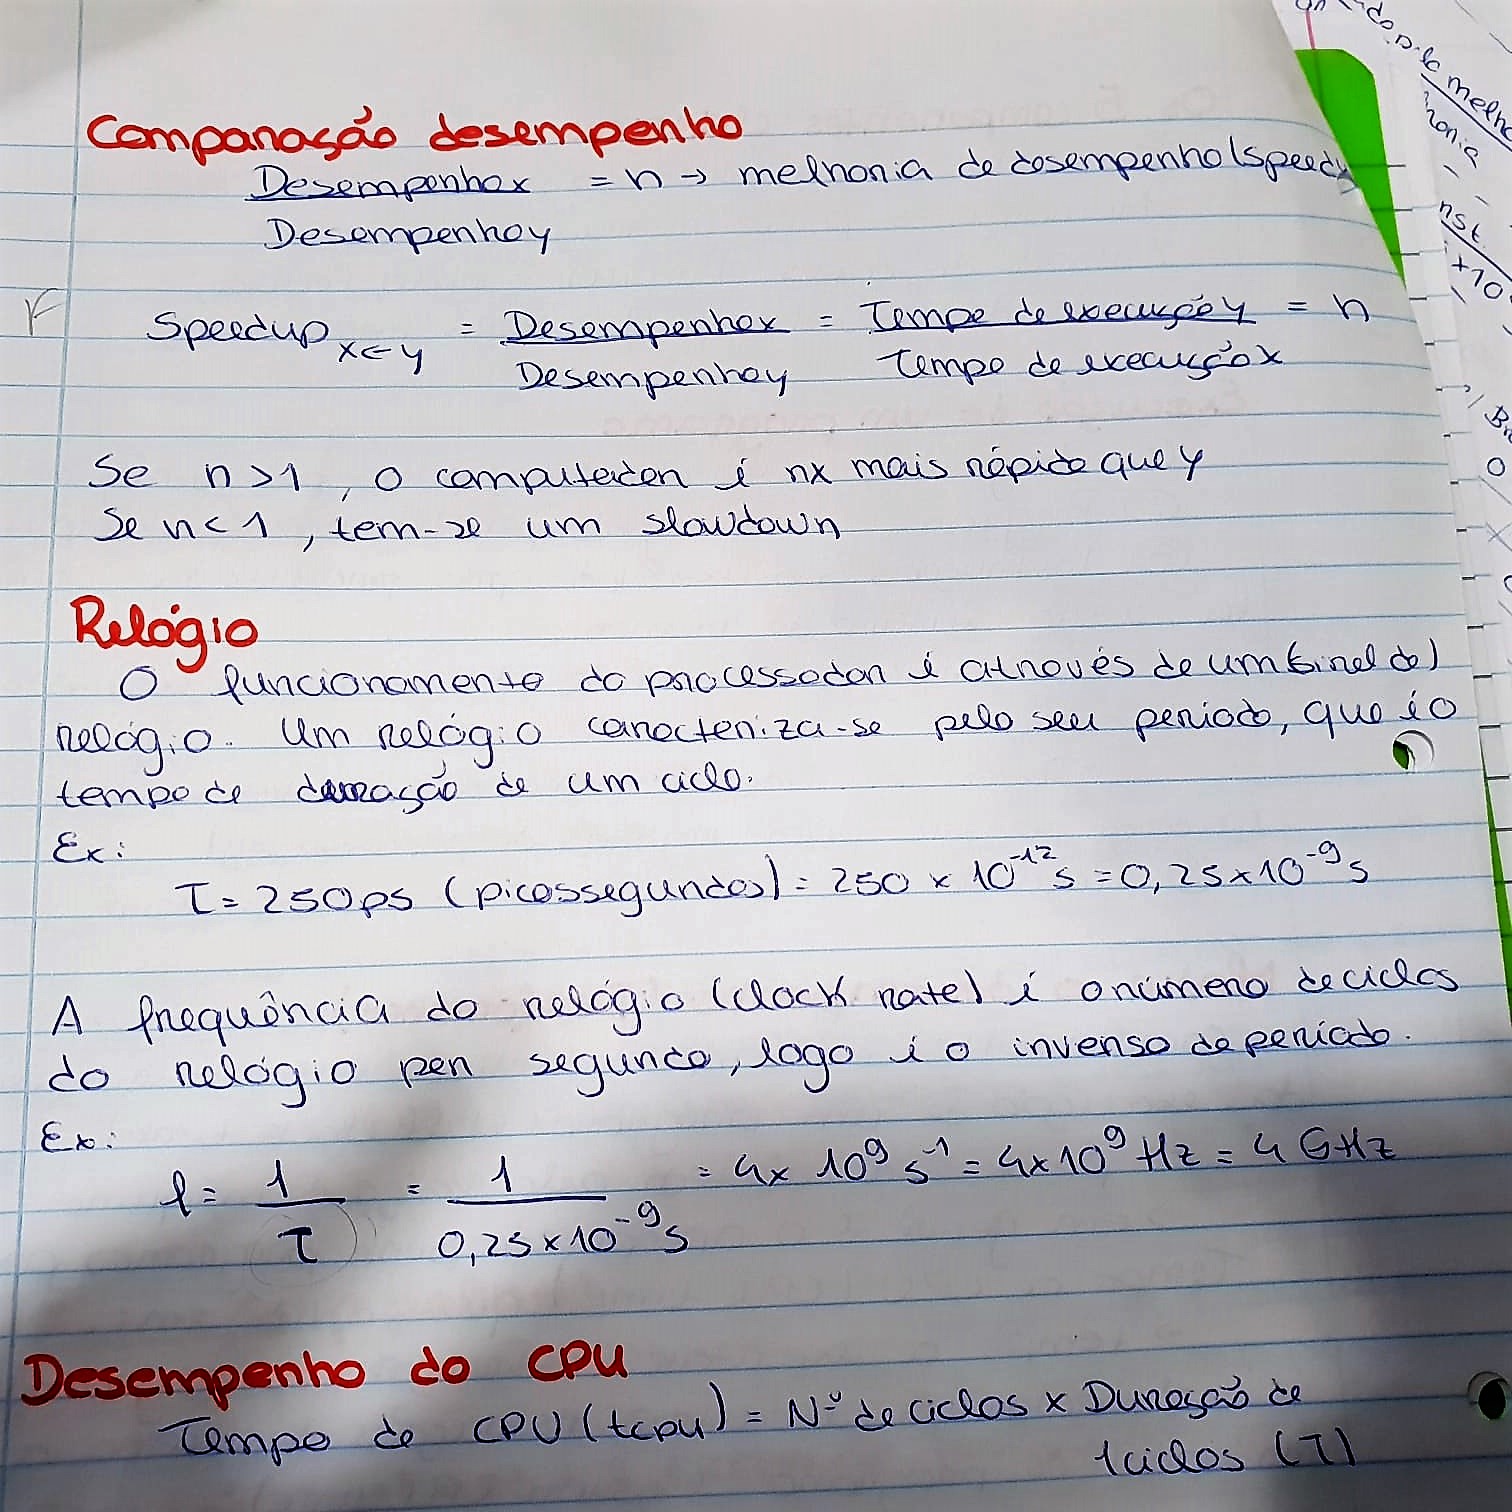 Comparação desempenho
Desempenhox = n → melhoria de desempenho (speedu
Desempenhoy
Speedup x<y = Desempenhox = Tempo de execuçãoy = n
Desempenhoy Tempo de execuçãox
Se n>1, o computador é nx mais rápido que y
Se n<1, tem-se um slowdown
Relógio
O funcionamento do processador é através de um (sinal de)
relógio. Um relógio caracteriza-se pelo seu periodo, que é o
tempo de duração de um ciclo.
Ex:
T = 250ps (picossegundos) = 250 x 10^-12 s = 0,25x10^-9 s
A frequência do relógio (clock rate) é o número de ciclos
do relógio per segundo, logo é o inverso de periodo.
Ex:
f = 1 = 1 = 4x 10^9 s^-1 = 4x10^9 Hz = 4 GHz
T 0,25x10^-9 s
Desempenho do CPU
Tempo de CPU (tcpu) = Nº de ciclos x Duração de
1 ciclos (T)
melho
nst.
+10